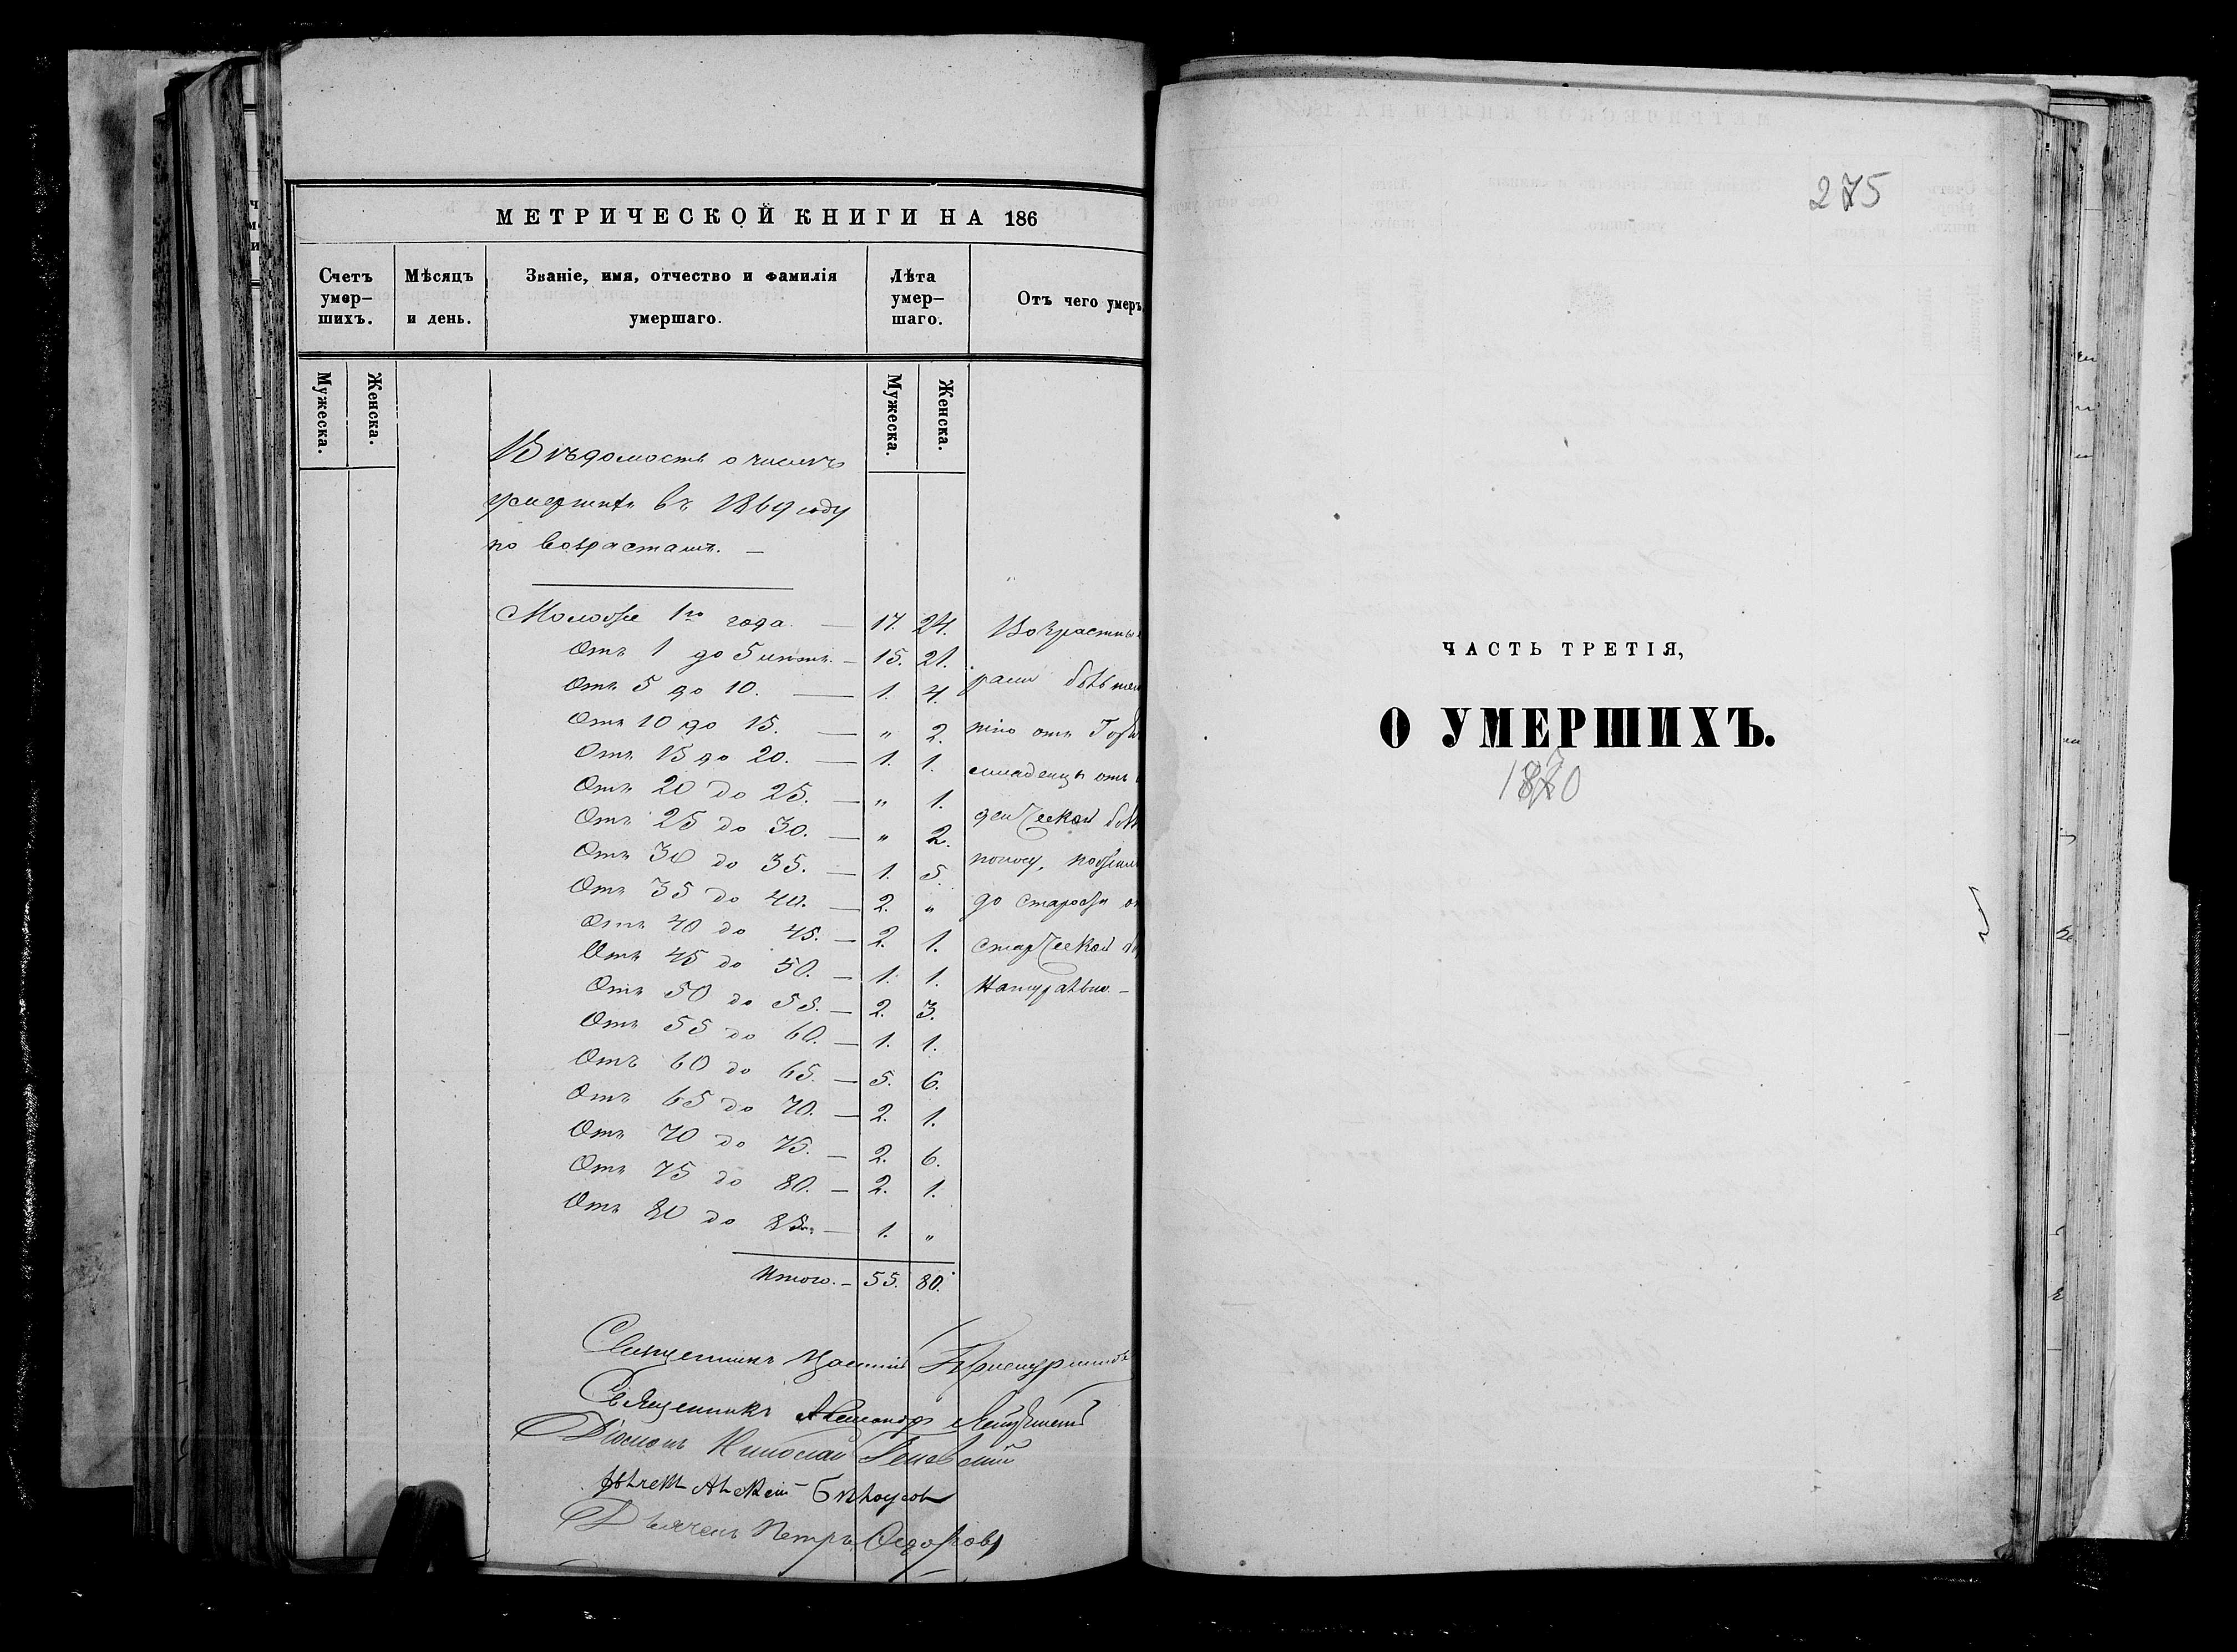 МЕТРИЧЕСКОЙ КНИГИ НА 186
Счетъ умер-шихъ.
Мѣсяцъ и день.
Званіе, имя, отчество и фамилія умершаго.
Лѣта умер-шаго.
Отъ чего умеръ
Мужеска.
Женска.
Мужеска.
Женска.
Вѣдомость о числѣ
умершихъ въ 1869 году
по возрастамъ. —
Моложе 1го года. — 17. 24.
Отъ 1 до 5 лѣтъ. — 15. 21.
Отъ 5 до 10. — 1. 4.
Отъ 10 до 15. — " 2.
Отъ 15 до 20. — 1. 1.
Отъ 20 до 25. — " 1.
Отъ 25 до 30. — " 2.
Отъ 30 до 35. — 1. 5.
Отъ 35 до 40. — 2. "
Отъ 40 до 45. — 2. 1.
Отъ 45 до 50. — 1. 1.
Отъ 50 до 55. — 2. 3.
Отъ 55 до 60. — 1. 1.
Отъ 60 до 65. — 5. 6.
Отъ 65 до 70. — 2. 1.
Отъ 70 до 75. — 2. 6.
Отъ 75 до 80. — 2. 1.
Отъ 80 до 85. — 1. "
Итого. — 55. 80.
младенцы отъ
поносу,
до старости
старческой
натурально. —
Священникъ
Священникъ Александръ
Діаконъ Николай
Алексѣй Бѣлоусовъ
Дьячекъ Петръ
275
ЧАСТЬ ТРЕТІЯ,
О УМЕРШИХЪ.
1870